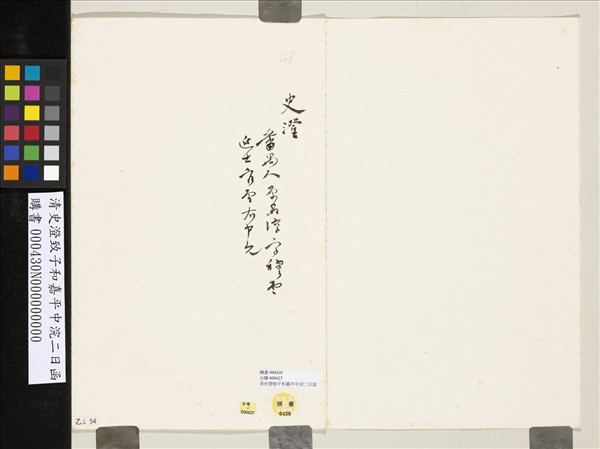 史澄
番禺人原名淳字穆堂
進士官至右中允
清史澄致子和嘉平中浣二日函
購書 000430N000000000
購書 000430
台購 000427
清史澄致子和嘉平中浣二日函
000427
購書
0430
乙三 54